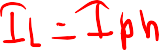 IL = Iph